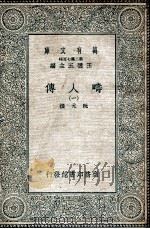 萬有文庫
第二集七百種
王雲五主編
疇人傳
（一）
阮元撰
商務印書館發行